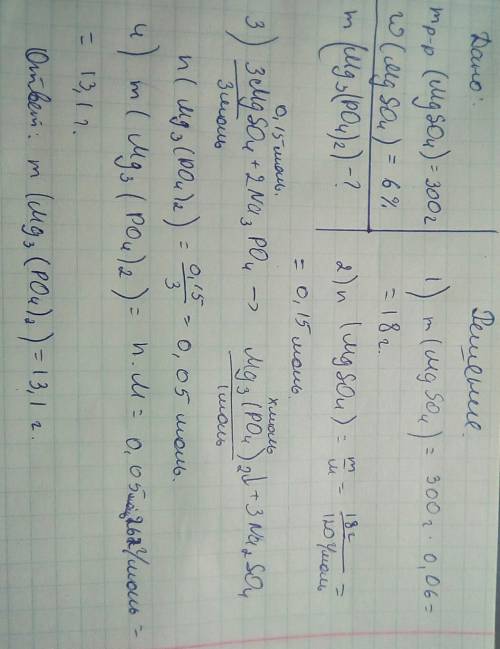 Дано:
m р-р (MgSO4) = 300г
w (MgSO4) = 6%
m (Mg3(PO4)2) - ?
Решение.
1) m (MgSO4) = 300г · 0,06 =
= 18 г.
2) n (MgSO4) = m/M = 18г/120г/моль =
= 0,15 моль.
0,15 моль. x моль
3) 3MgSO4 + 2Na3PO4 -> Mg3(PO4)2↓ + 3Na2SO4
3 моль 1 моль
n (Mg3(PO4)2) = 0,15/3 = 0,05 моль.
4) m (Mg3(PO4)2) = n · M = 0,05 моль · 262г/моль =
= 13,1 г.
Ответ: m (Mg3(PO4)2) = 13,1 г.